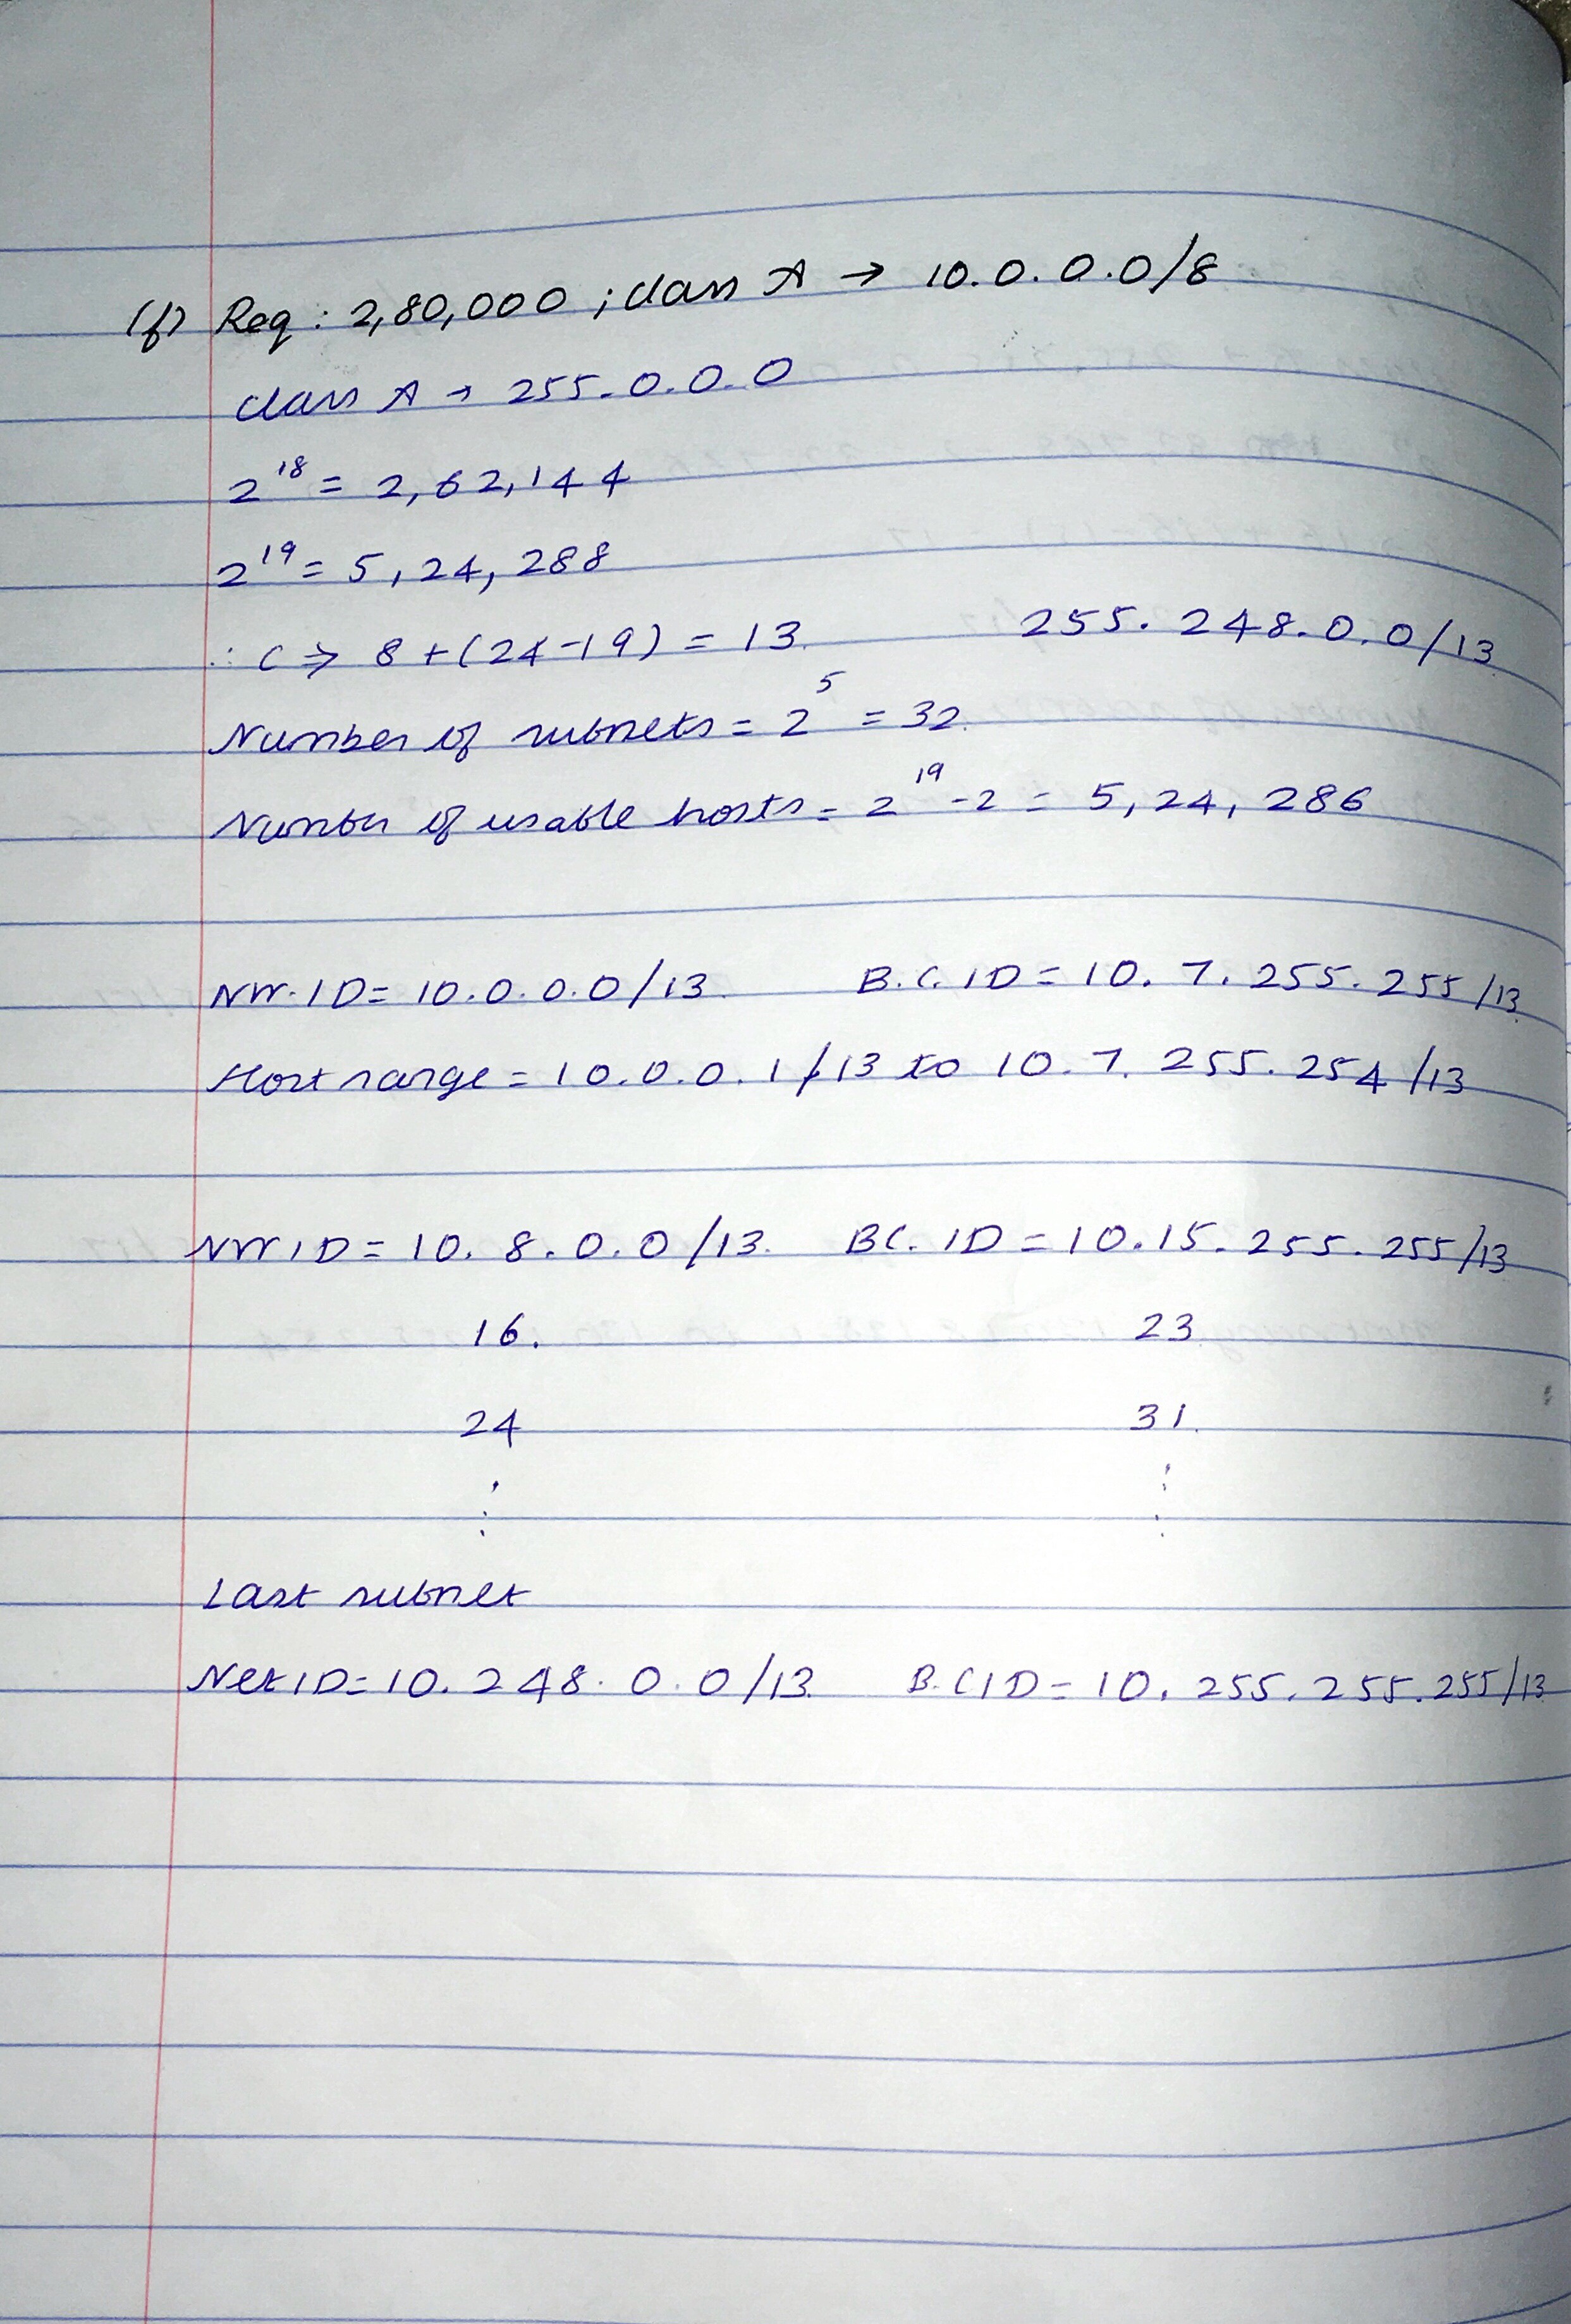 (f) Req : 2,80,000 ; class A → 10.0.0.0/8
class A → 255.0.0.0
2^18 = 2,62,144
2^19 = 5,24,288
∴ C ⇒ 8+(24-19) = 13. 255.248.0.0/13
Number of subnets = 2^5 = 32.
Number of usable hosts = 2^19 - 2 = 5,24,286
NW.ID = 10.0.0.0/13. B.C.ID = 10.7.255.255/13
Host range = 10.0.0.1/13 to 10.7.255.254/13
NW ID = 10.8.0.0/13. BC.ID = 10.15.255.255/13
16. 23
24 31.
⋮ ⋮
Last subnet
Net ID = 10.248.0.0/13. B.C ID = 10.255.255.255/13